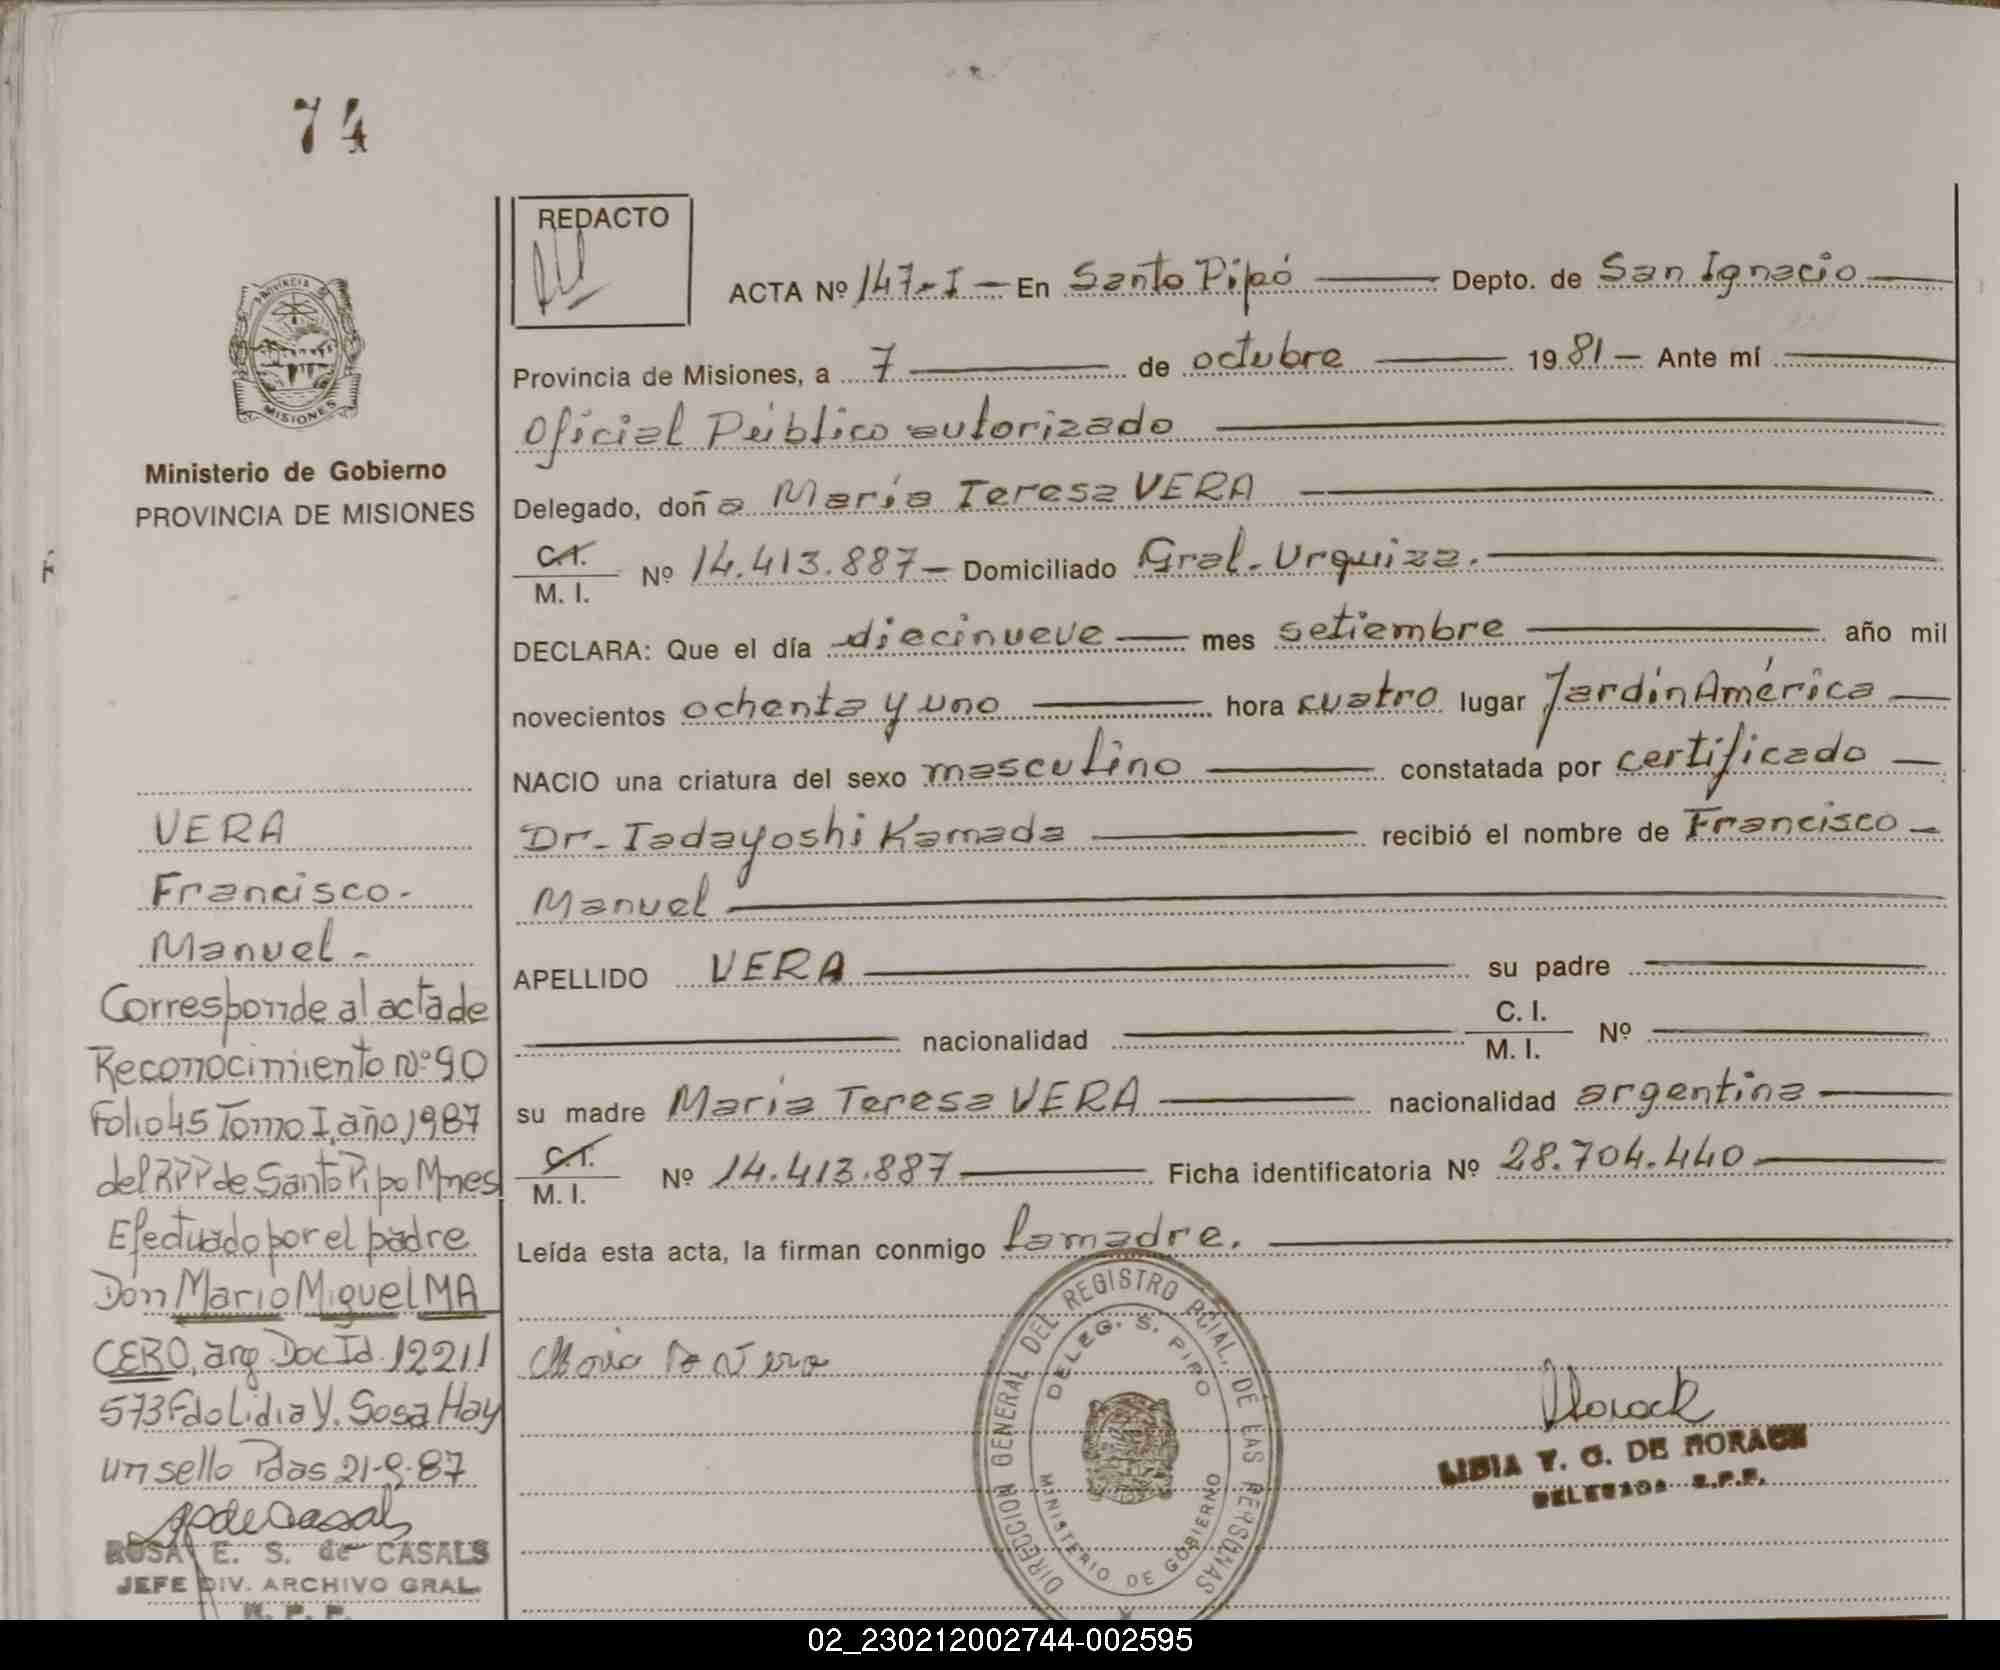 74
REDACTO
ACTA Nº 147-I - En Santo Pipó Depto. de San Ignacio
Provincia de Misiones, a 7 de octubre 1981 - Ante mí
Oficial Público autorizado
Delegado, doña María Teresa VERA
C.I.
M. I. Nº 14.413.887 - Domiciliado Gral. Urquiza.
DECLARA: Que el día diecinueve mes setiembre año mil
novecientos ochenta y uno hora cuatro lugar Jardín América
NACIO una criatura del sexo masculino constatada por certificado
Dr. Tadayoshi Kamada recibió el nombre de Francisco
Manuel
APELLIDO VERA su padre
nacionalidad C. I.
M. I. Nº
su madre María Teresa VERA nacionalidad argentina
C.I.
M. I. Nº 14.413.887 Ficha identificatoria Nº 28.704.440
Leída esta acta, la firman conmigo la madre.
DIRECCION GENERAL DEL REGISTRO PCIAL. DE LAS PERSONAS
DELEG. S. PIPO
MINISTERIO DE GOBIERNO
LIBIA Y. G. DE MORACK
DELEGADA R.P.P.
PROVINCIA DE
MISIONES
Ministerio de Gobierno
PROVINCIA DE MISIONES
VERA
Francisco-
Manuel-
Corresponde al acta de
Reconocimiento nº 90
Folio 45 Tomo I, año 1987
del RPP de Santo Pipo Mnes
Efectuado por el padre
Don Mario Miguel MA
CERO, arg. Doc Id. 12211
573 Fdo Lidia Y. Sosa Hay
un sello Pdas 21-9-87
ROSA E. S. de CASALS
JEFE DIV. ARCHIVO GRAL.
R. P. P.
02_230212002744-002595